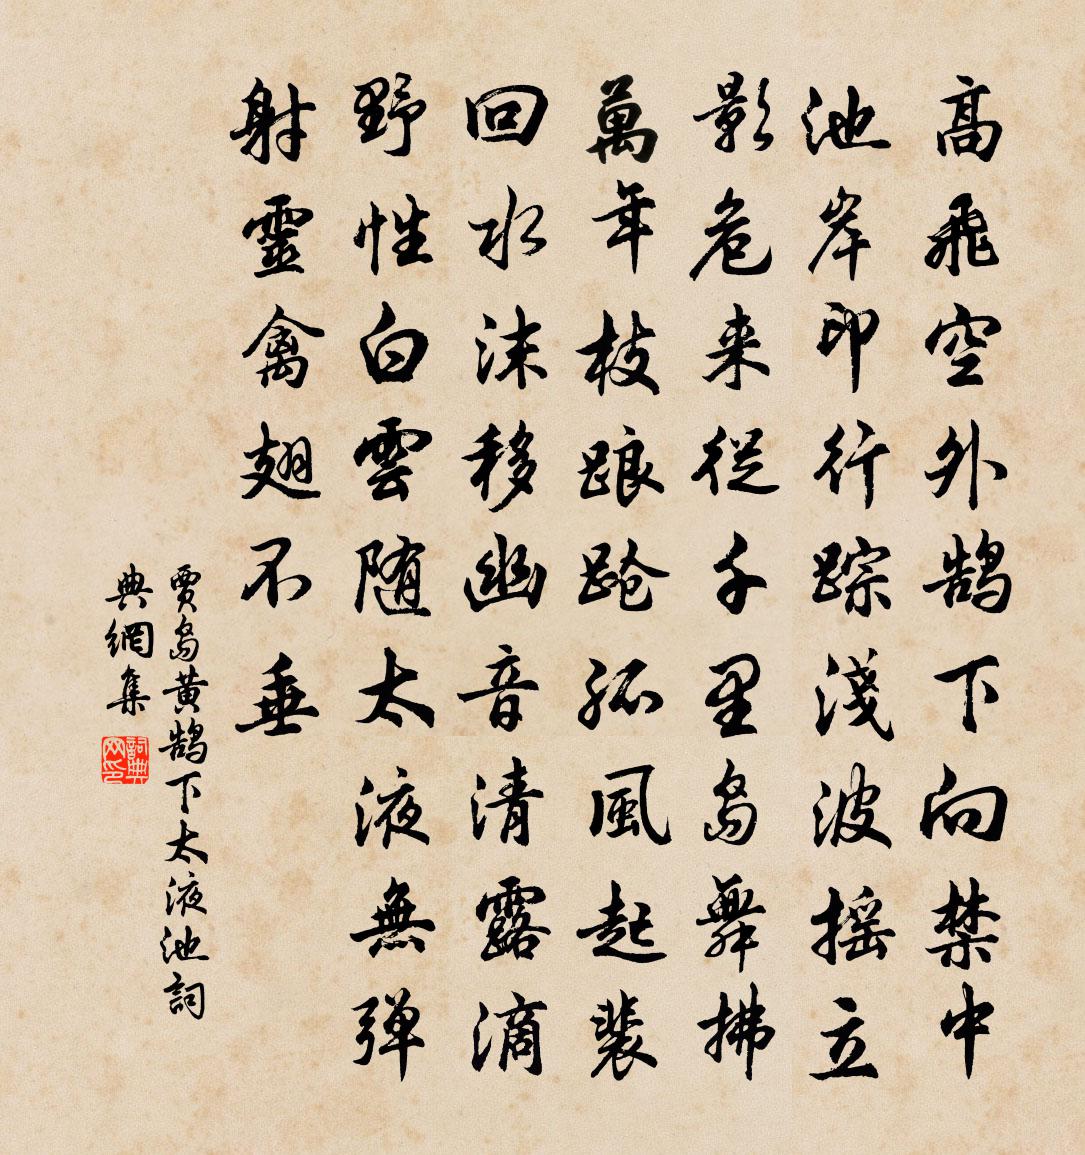 高飛空外鹄下向禁中
池岸印行踪淺波摇立
影危来從千里岛舞拂
萬年枝踉跄孤風起裴
回水沫移幽音清露滴
野性白雲随太液無弹
射靈禽翅不垂
贾岛黄鹄下太液池詞
典網集
詞典网印